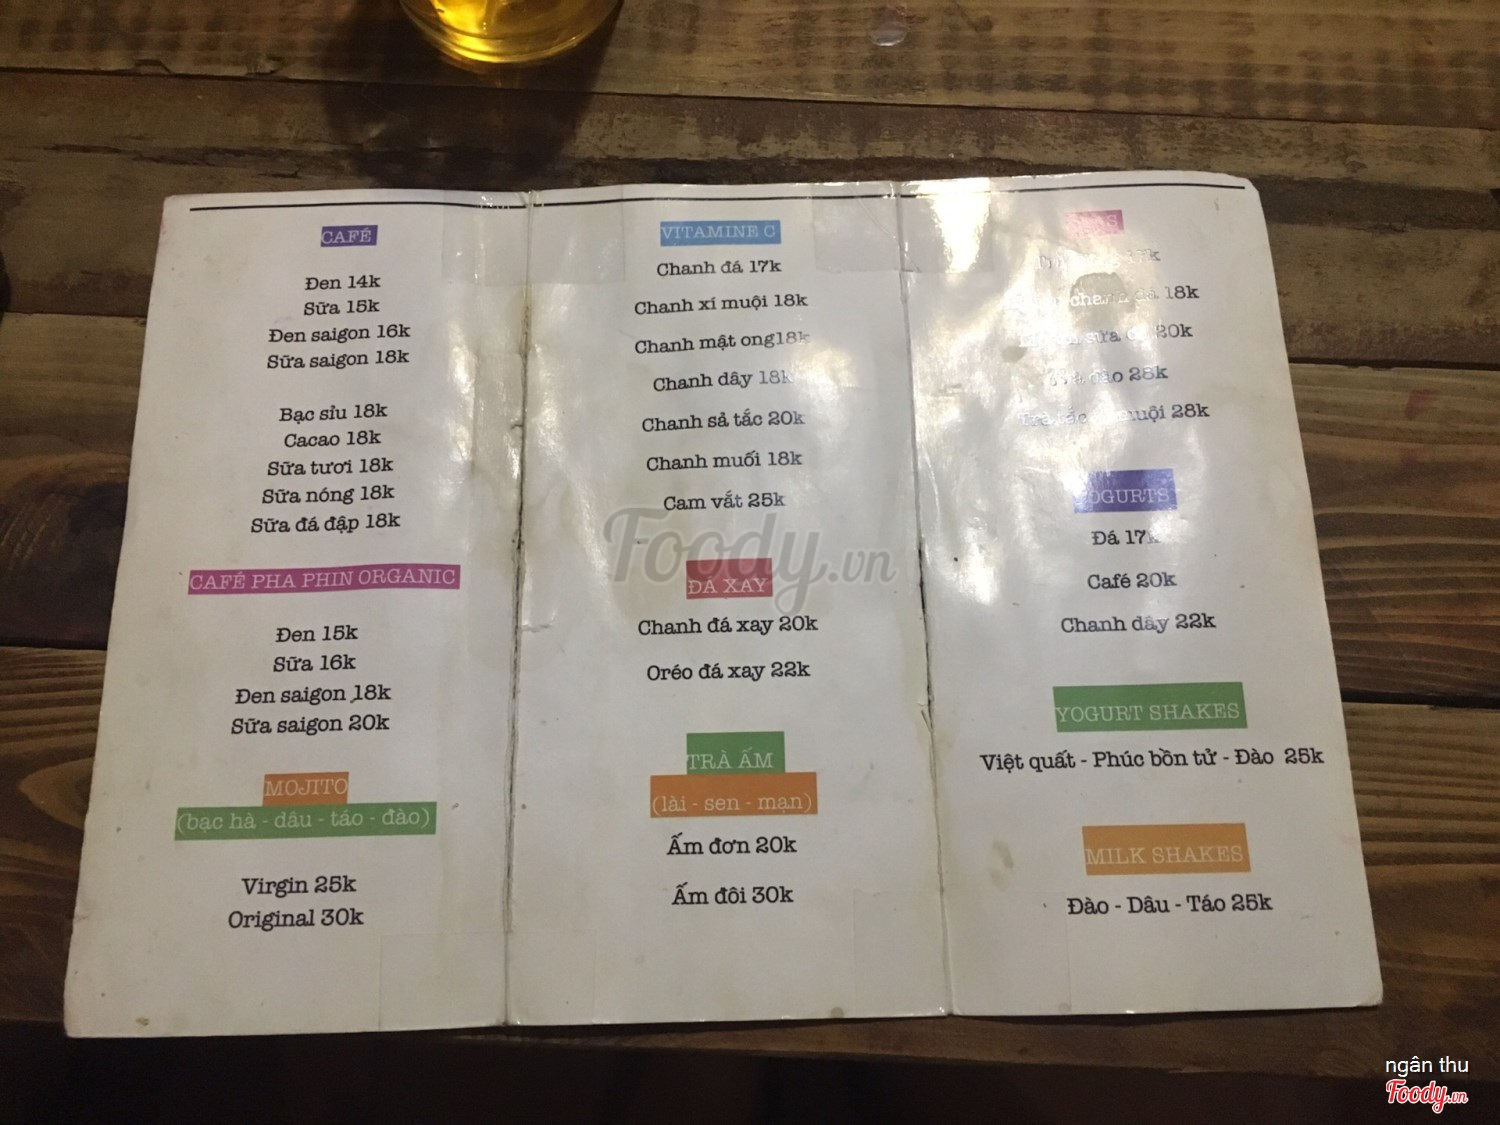 CAFÉ
Đen 14k
Sữa 15k
Đen saigon 16k
Sữa saigon 18k
Bạc sỉu 18k
Cacao 18k
Sữa tươi 18k
Sữa nóng 18k
Sữa đá đập 18k
CAFÉ PHA PHIN ORGANIC
Đen 15k
Sữa 16k
Đen saigon 18k
Sữa saigon 20k
MOJITO
(bạc hà - dâu - táo - đào)
Virgin 25k
Original 30k
VITAMINE C
Chanh đá 17k
Chanh xí muội 18k
Chanh mật ong18k
Chanh dây 18k
Chanh sả tắc 20k
Chanh muối 18k
Cam vắt 25k
ĐÁ XAY
Chanh đá xay 20k
Oréo đá xay 22k
TRÀ ẤM
(lài - sen - mạn)
Ấm đơn 20k
Ấm đôi 30k
chanh đá 18k
sữa 20k
đào 28k
Trà tắc muội 28k
YOGURTS
Đá 17k
Café 20k
Chanh dây 22k
YOGURT SHAKES
Việt quất - Phúc bồn tử - Đào 25k
MILK SHAKES
Đào - Dâu - Táo 25k
Foody.vn
ngân thu
Foody.vn